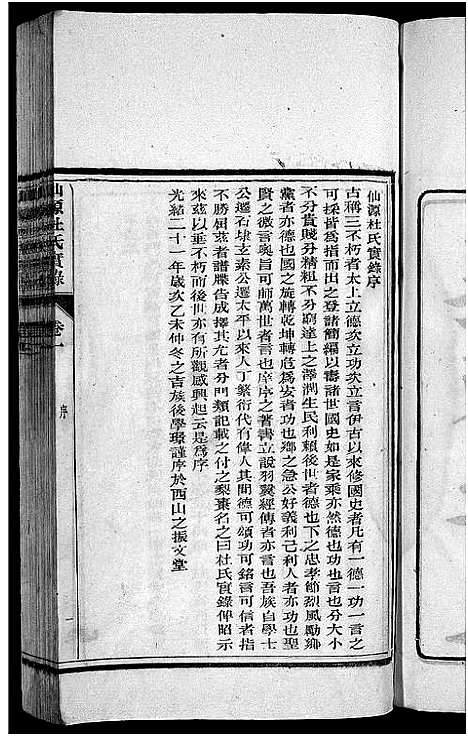 仙源杜氏實錄序
古稱三不朽者太上立德次立功次立言伊古以來修國史者凡有一德一功一言之
可採皆爲指而出之登諸簡編以壽諸世國史如是家乘亦然德也功也言也分大小
不分貴賤分精粗不分窮達上之澤潤生民利賴後世者德也下之忠孝節烈風勵鄉
黨者亦德也國之旋轉乾坤轉危爲安者功也鄉之急公好義利己利人者亦功也聖
賢之微言奧旨可師萬世者言也庠序之著書立說羽翼經傳者亦言也吾族自學士
公遷石埭支素公遷太平以來人丁繁衍代有偉人其間德可頌功可銘言可信者指
不勝屈茲者譜牒告成擇其尤者分門類記載之付之梨棗名之曰杜氏實錄俾昭示
來茲以垂不朽而後世亦有所觀感興起云是爲序
光緒二十一年歲次乙未仲冬之吉族後學璟謹序於西山之振文堂
仙源杜氏實錄
卷一
序
一